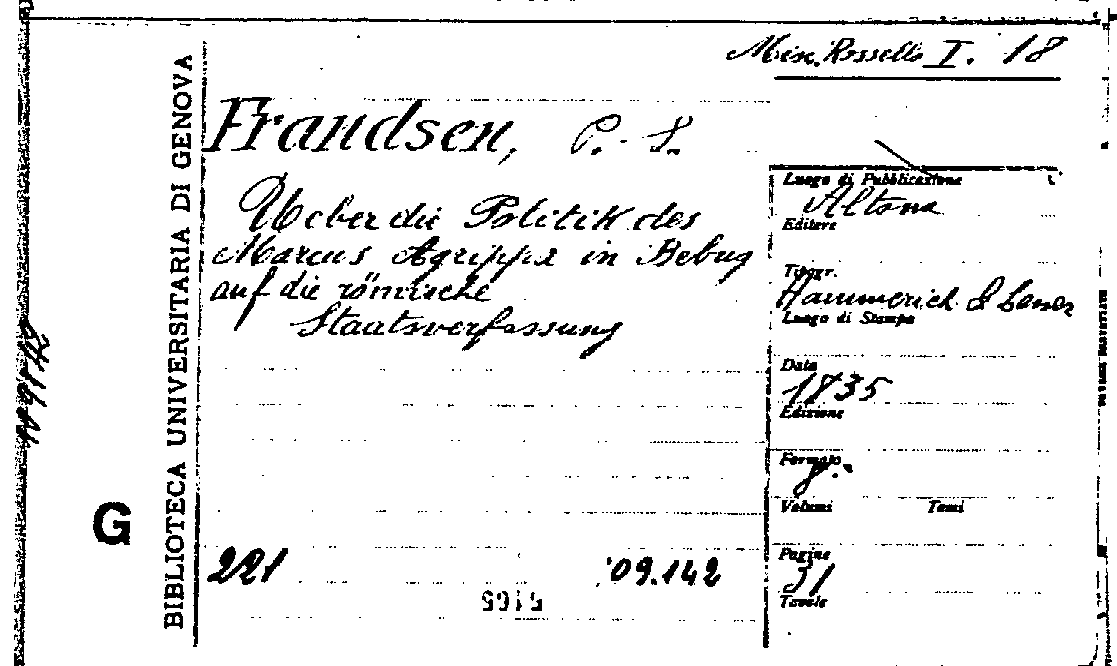 Misc. Rossello I. 18
Frandsen, P. S.
Ueber die Politik des
Marcus Agrippa in Bebug
auf die römische
Staatsverfassung
BIBLIOTECA UNIVERSITARIA DI GENOVA
G
Luogo di Pubblicazione
Altona
Editore
Tipogr.
Hammerich &
Luogo di Stampa
Data
1835
Edizione
Formato
8.
Volumi Tomi
Pagine
51
Tavole
221 09.142
5165